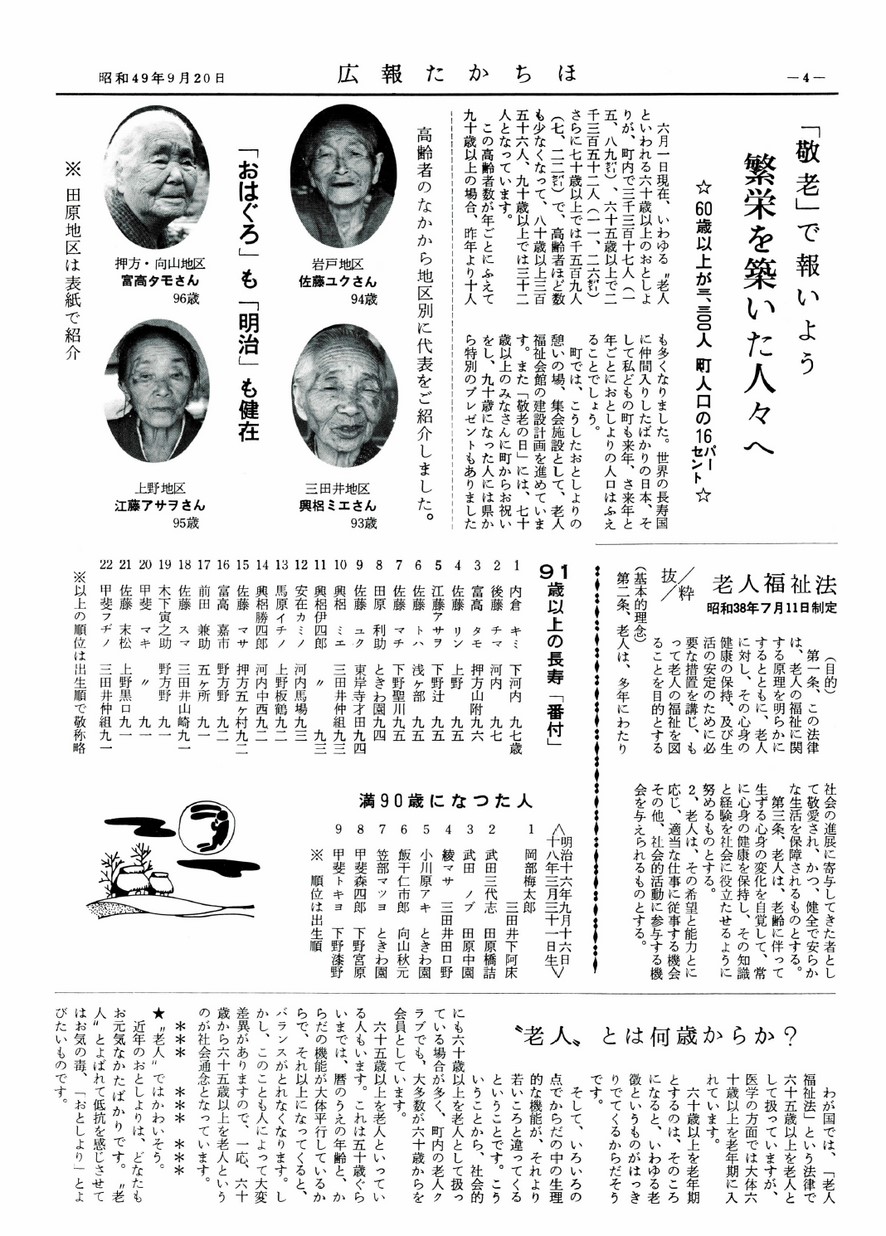 昭和49年9月20日
広報たかちほ
―4―
「敬老」で報いよう
繁栄を築いた人々へ
☆60歳以上が三、三〇〇人 町人口の16パーセント☆
六月一日現在、いわゆる〝老人
といわれる六十歳以上のおとしよ
りが、町内で三千三百十七人(一
五、八九㌫)、六十五歳以上で二
千三百五十二人(一一、二六㌫)
さらに七十歳以上では千五百九人
(七、二二㌫)で、高齢者ほど数
も少なくなって、八十歳以上三百
五十六人、九十歳以上では三十二
人となっています。
この高齢者数が年ごとにふえて
九十歳以上の場合、昨年より十人
も多くなりました。世界の長寿国
に仲間入りしたばかりの日本、そ
して私どもの町も来年、さ来年と
年ごとにおとしよりの人口はふえ
ることでしょう。
町では、こうしたおとしよりの
憩いの場、集会施設として、老人
福祉会館の建設計画を進めていま
す。また「敬老の日」には、七十
歳以上のみなさんに町からお祝い
をし、九十歳になった人には県か
ら特別のプレゼントもありました
高齢者のなかから地区別に代表をご紹介しました。
岩戸地区
佐藤ユクさん
94歳
三田井地区
興梠ミエさん
93歳
「おはぐろ」も「明治」も健在
押方・向山地区
富高タモさん
96歳
上野地区
江藤アサヲさん
95歳
※ 田原地区は表紙で紹介
老人福祉法
昭和38年7月11日制定
抜/粋
(目的)
第一条、この法律
は、老人の福祉に関
する原理を明らかに
するとともに、老人
に対し、その心身の
健康の保持、及び生
活の安定のために必
要な措置を講じ、も
って老人の福祉を図
ることを目的とする
(基本的理念)
第二条、老人は、多年にわたり
社会の進展に寄与してきた者とし
て敬愛され、かつ、健全で安らか
な生活を保障されるものとする。
第三条、老人は、老齢に伴って
生ずる心身の変化を自覚して、常
に心身の健康を保持し、その知識
と経験を社会に役立たせるように
努めるものとする。
2、老人は、その希望と能力とに
応じ、適当な仕事に従事する機会
その他、社会的活動に参与する機
会を与えられるものとする。
91歳以上の長寿「番付」
1 内倉 キミ 下河内 九七歳
2 後藤 チマ 河内 九七
3 富高 タモ 押方山附 九六
4 佐藤 リン 上野 九五
5 江藤アサヲ 下野辻 九五
6 佐藤 トハ 浅ケ部 九五
7 佐藤 マチ 下野聖川 九五
8 田原 利助 ときわ園 九四
9 佐藤 ユク 東岸寺才田 九四
10 興梠 ミエ 三田井仲組 九三
11 興梠伊四郎 〃 九三
12 安在カミノ 河内馬場 九三
13 馬原イチノ 上野板鶴 九二
14 興梠勝四郎 河内中西 九二
15 佐藤 マサ 押方五ケ村 九二
16 富高 嘉市 野方野 九二
17 前田 兼助 五ケ所 九一
18 佐藤 スマ 三田井山崎 九一
19 木下寅之助 野方野 九一
20 甲斐 マキ 〃 九一
21 佐藤 末松 上野黒口 九一
22 甲斐フヂノ 三田井仲組 九一
※以上の順位は出生順で敬称略
満90歳になつた人
〈明治十六年九月十六日
十八年三月三十一日生〉
1 岡部梅太郎 三田井下阿床
2 武田三代志 田原橋詰
3 武田 ノブ 田原中園
4 綾マサ 三田井田口野
5 小川原アキ ときわ園
6 飯干仁市郎 向山秋元
7 笠部マツヨ ときわ園
8 甲斐森四郎 下野宮原
9 甲斐トキヨ 下野漆野
※ 順位は出生順
〝老人〟とは何歳からか?
わが国では、「老人
福祉法」という法律で
六十五歳以上を老人と
して扱っていますが、
医学の方面では大体六
十歳以上を老年期に入
れています。
六十歳以上を老年期
とするのは、そのころ
になると、いわゆる老
徴というものがはっき
りでてくるからだそう
です。
そして、いろいろの
点でからだの中の生理
的な機能が、それより
若いころと違ってくる
ということです。こう
いうことから、社会的
にも六十歳以上を老人として扱っ
ている場合が多く、町内の老人ク
ラブでも、大多数が六十歳からを
会員としています。
六十五歳以上を老人といってい
る人もいます。これは五十歳ぐら
いまでは、暦のうえの年齢と、か
らだの機能が大体平行しているか
らで、それ以上になってくると、
バランスがとれなくなります。し
かし、このことも人によって大変
差異がありますので、一応、六十
歳から六十五歳以上を老人という
のが社会通念となっています。
*** *** ***
★〝老人〟ではかわいそう。
近年のおとしよりは、どなたも
お元気なかたばかりです。〝老
人〟とよばれて低抗を感じさせて
はお気の毒、「おとしより」とよ
びたいものです。